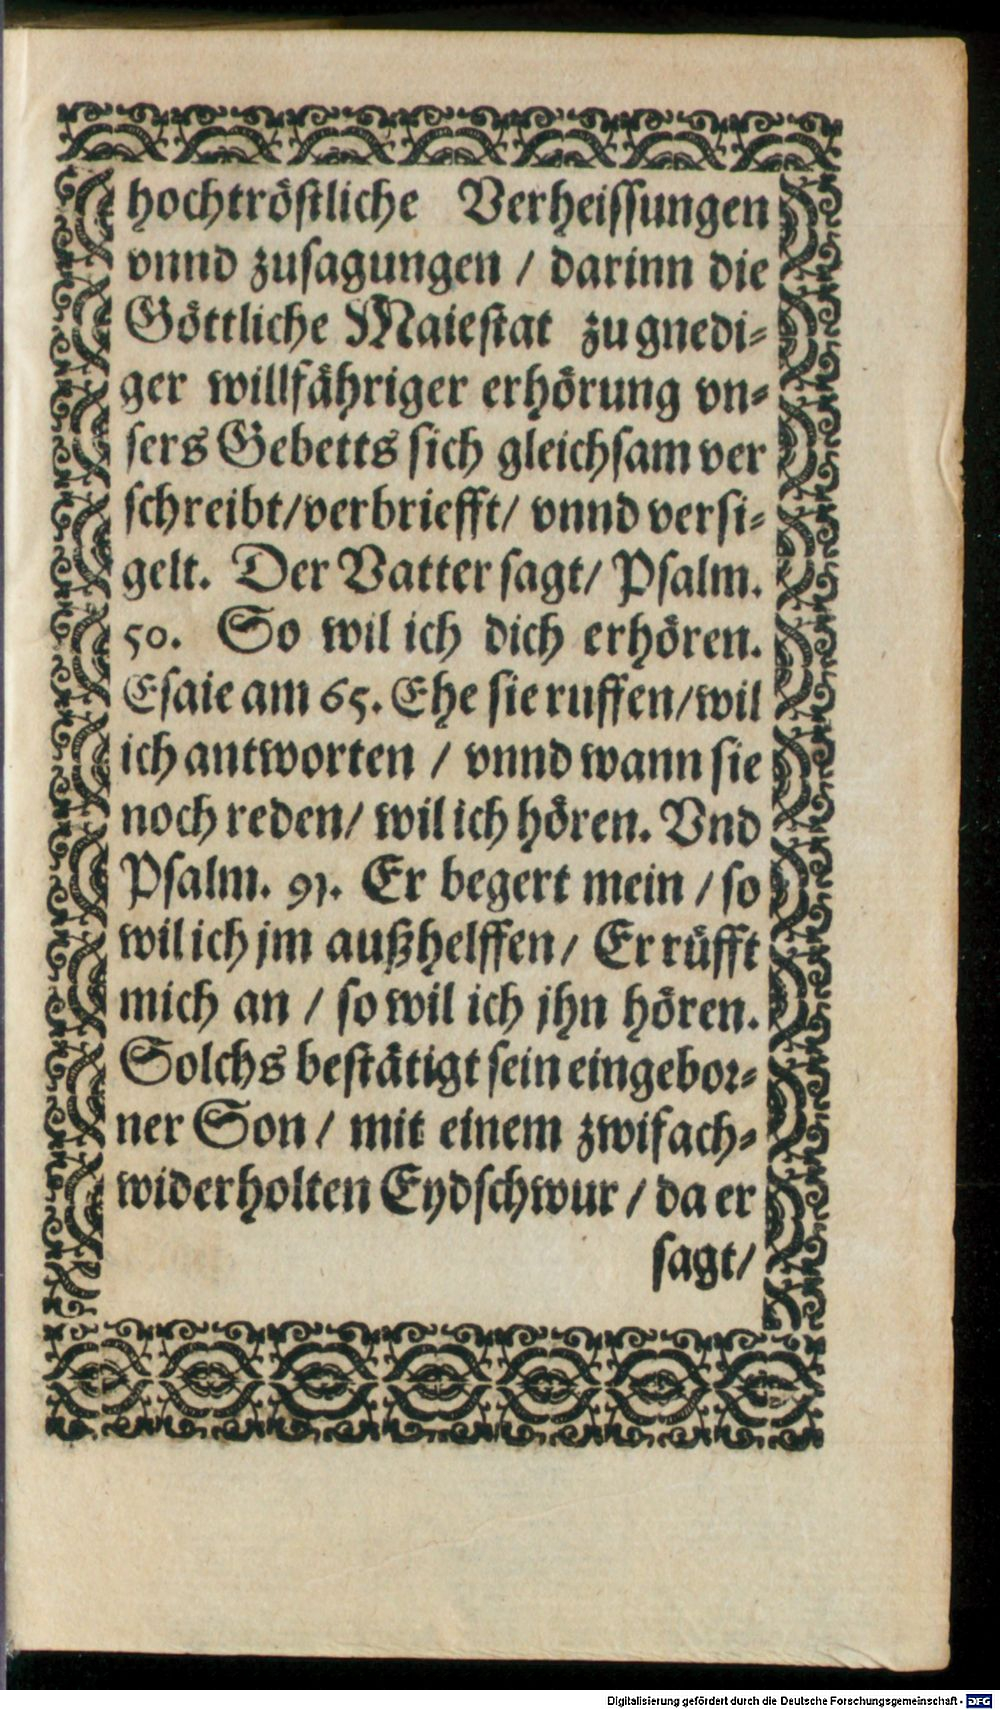 hochtröstliche Verheissungen
vnnd zusagungen / darinn die
Göttliche Maiestat zu gnedi-
ger willfähriger erhörung vn-
sers Gebetts sich gleichsam ver
schreibt/verbriefft/ vnnd versi-
gelt. Der Vatter sagt/ Psalm.
50. So wil ich dich erhören.
Esaie am 65. Ehe sie ruffen/wil
ich antworten / vnnd wann sie
noch reden/ wil ich hören. Vnd
Psalm. 91. Er begert mein / so
wil ich jm außhelffen/ Er rüfft
mich an / so wil ich jhn hören.
Solchs bestätigt sein eingebor-
ner Son / mit einem zwifach-
widerholten Eydschwur / da er
sagt/
Digitalisierung gefördert durch die Deutsche Forschungsgemeinschaft - DFG